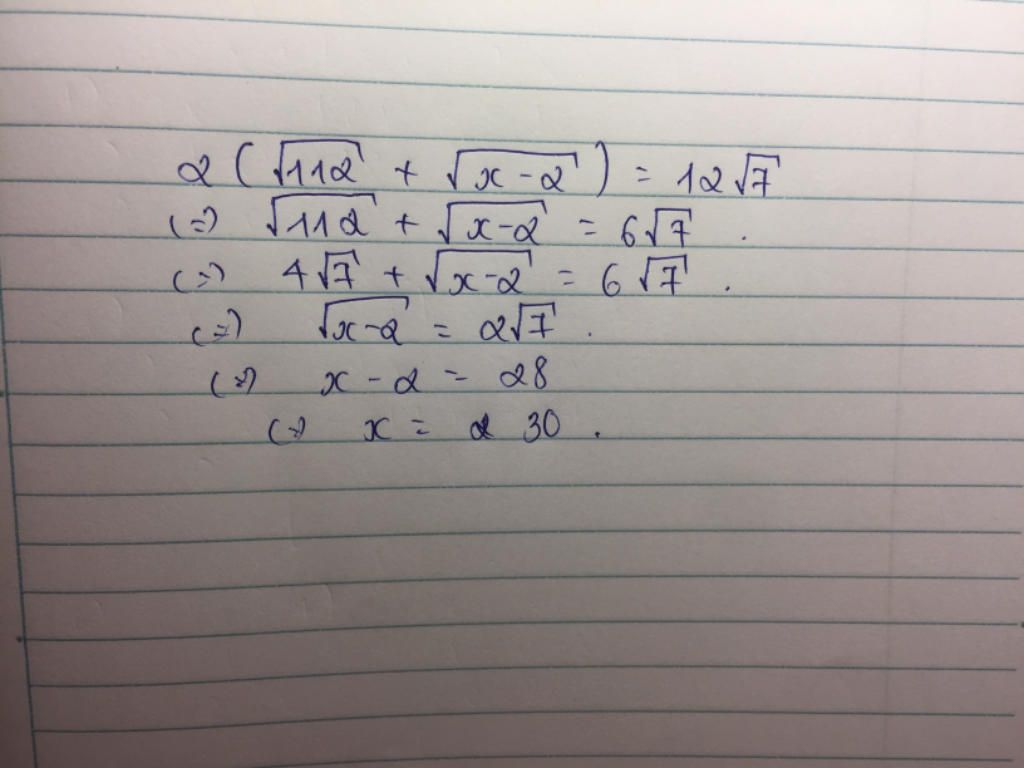 2 ( √112 + √x-2 ) = 12√7
(=) √112 + √x-2 = 6√7 .
(=) 4√7 + √x-2 = 6√7 .
(=) √x-2 = 2√7 .
(=) x - 2 = 28
(=) x = 30 .